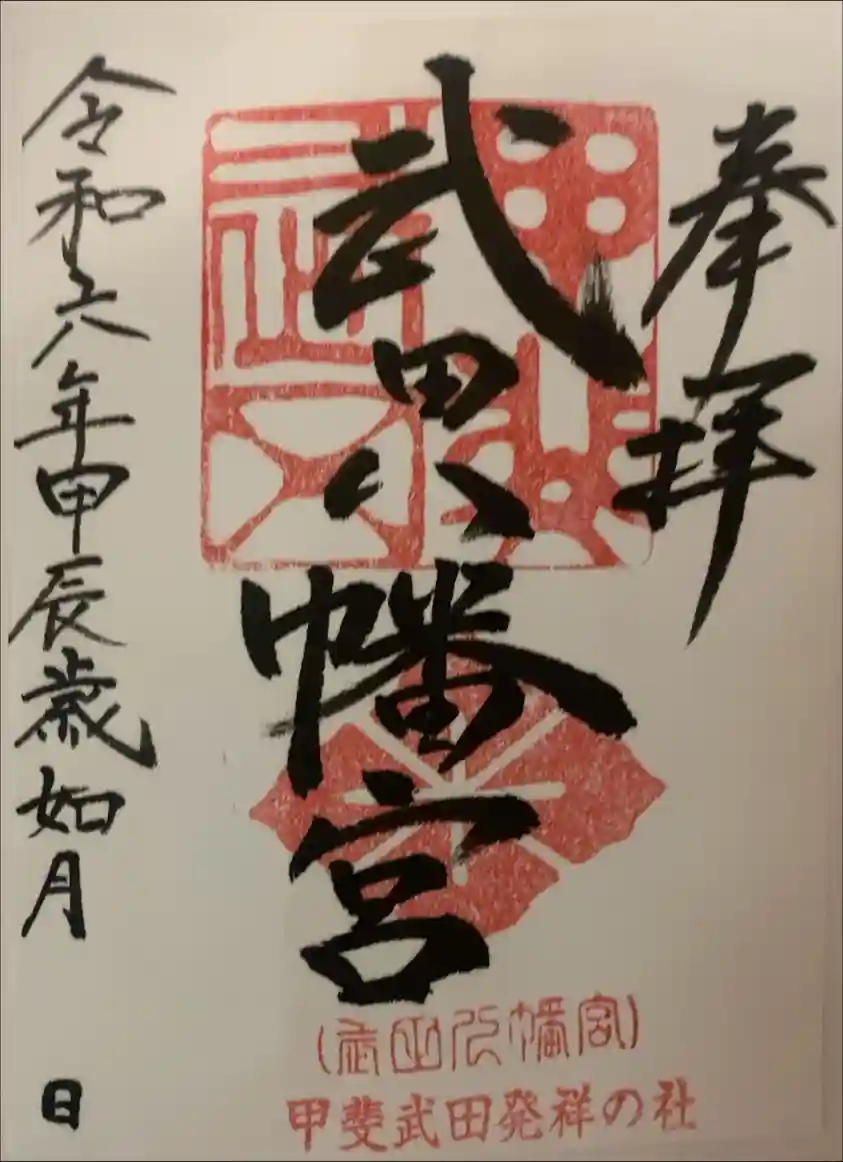 奉拝
武田八幡宮
令和六年甲辰歳如月 日
(武田八幡宮)
甲斐武田発祥の社